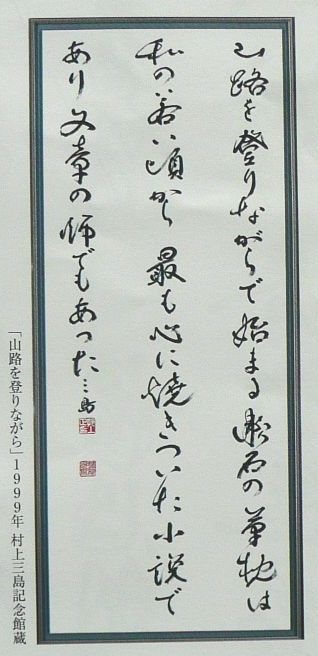 山路を登りながらで始まる漱石の草枕は
私の若い頃から 最も心に焼きついた小説で
あり文章の師でもあつた 三島
「山路を登りながら」1999年 村上三島記念館蔵